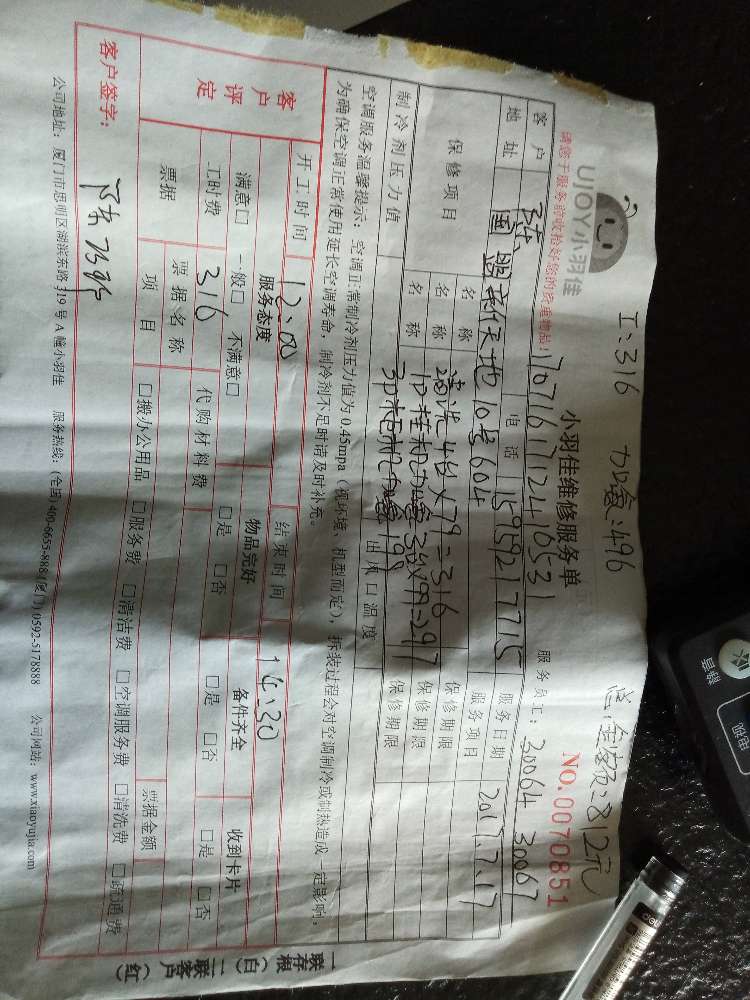 工:316 加氟:496 总金额:812元
UJOY小羽佳
小羽佳维修服务单
NO.0070851
请您于服务前收检好您的贵重物品!
170716171241 6531
服务员工: 30064 30067
客户 陈 电话 15959217715 服务日期 2017.7.17
地址 国贸新天地10号604 服务项目
保修项目 名称 清洗4台×79=316 保修期限
名称 1P挂机加氟3台×99=297 保修期限
名称 3P柜机加氟199 保修期限
制冷剂压力值 出风口温度
空调服务温馨提示: 空调正常制冷剂压力值为0.45mpa(视环境、机型而定), 拆装过程会对空调制冷或制热造成一定影响,
为确保空调正常使用延长空调寿命, 制冷剂不足时请及时补充。
开工时间 12:00 结束时间 14:30
客户评定 服务态度 物品完好 备件齐全 收到卡片
满意□ 一般□ 不满意□ □是 □否 □是 □否 □是 □否
工时费 316 代购材料费
票据 票据名称 票据金额
项目 □搬办公用品 □服务费 □清洁费 □空调服务费 □清洗费 □疏通费
客户签字:
公司地址: 厦门市思明区湖滨东路319号A幢小羽佳 服务热线: (全国) 400-6655-888 (厦门) 0592-5178888 公司网站: www.xiaoyujia.com
一联存根(白) 二联客户(红)
静音
电视
deli